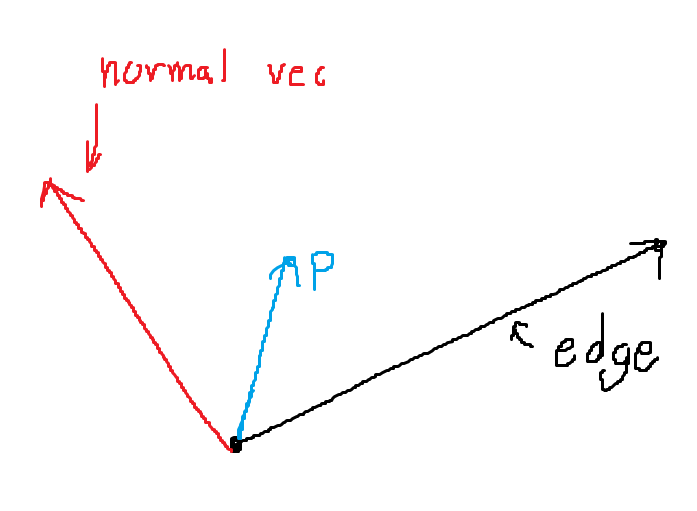 normal vec
P
edge